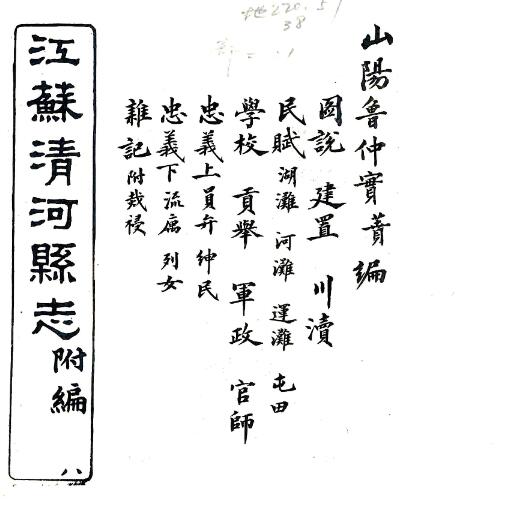 地220.51
38
山陽魯仲實蕡編
圖說 建置 川瀆
民賦 湖灘 河灘 運灘 屯田
學校 貢舉 軍政 官師
忠義上 員弁 紳民
忠義下 流寓 列女
雜記 附烖祲
江蘇清河縣志 附編 八